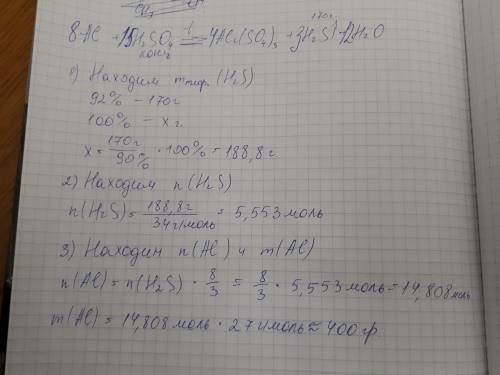 170г
8Al + 15H₂SO₄ = 4Al₂(SO₄)₃ + 3H₂S↑ + 12H₂O
конц
1) Находим mтеор. (H₂S)
92% – 170г
100% – x г
x = 170г/90% · 100% = 188,8г
2) Находим n(H₂S)
n(H₂S) = 188,8г/34г/моль = 5,553моль
3) Находим n(Al) и m(Al)
n(Al) = n(H₂S) · 8/3 = 8/3 · 5,553моль = 14,808моль
m(Al) = 14,808моль · 27г/моль ≈ 400гр